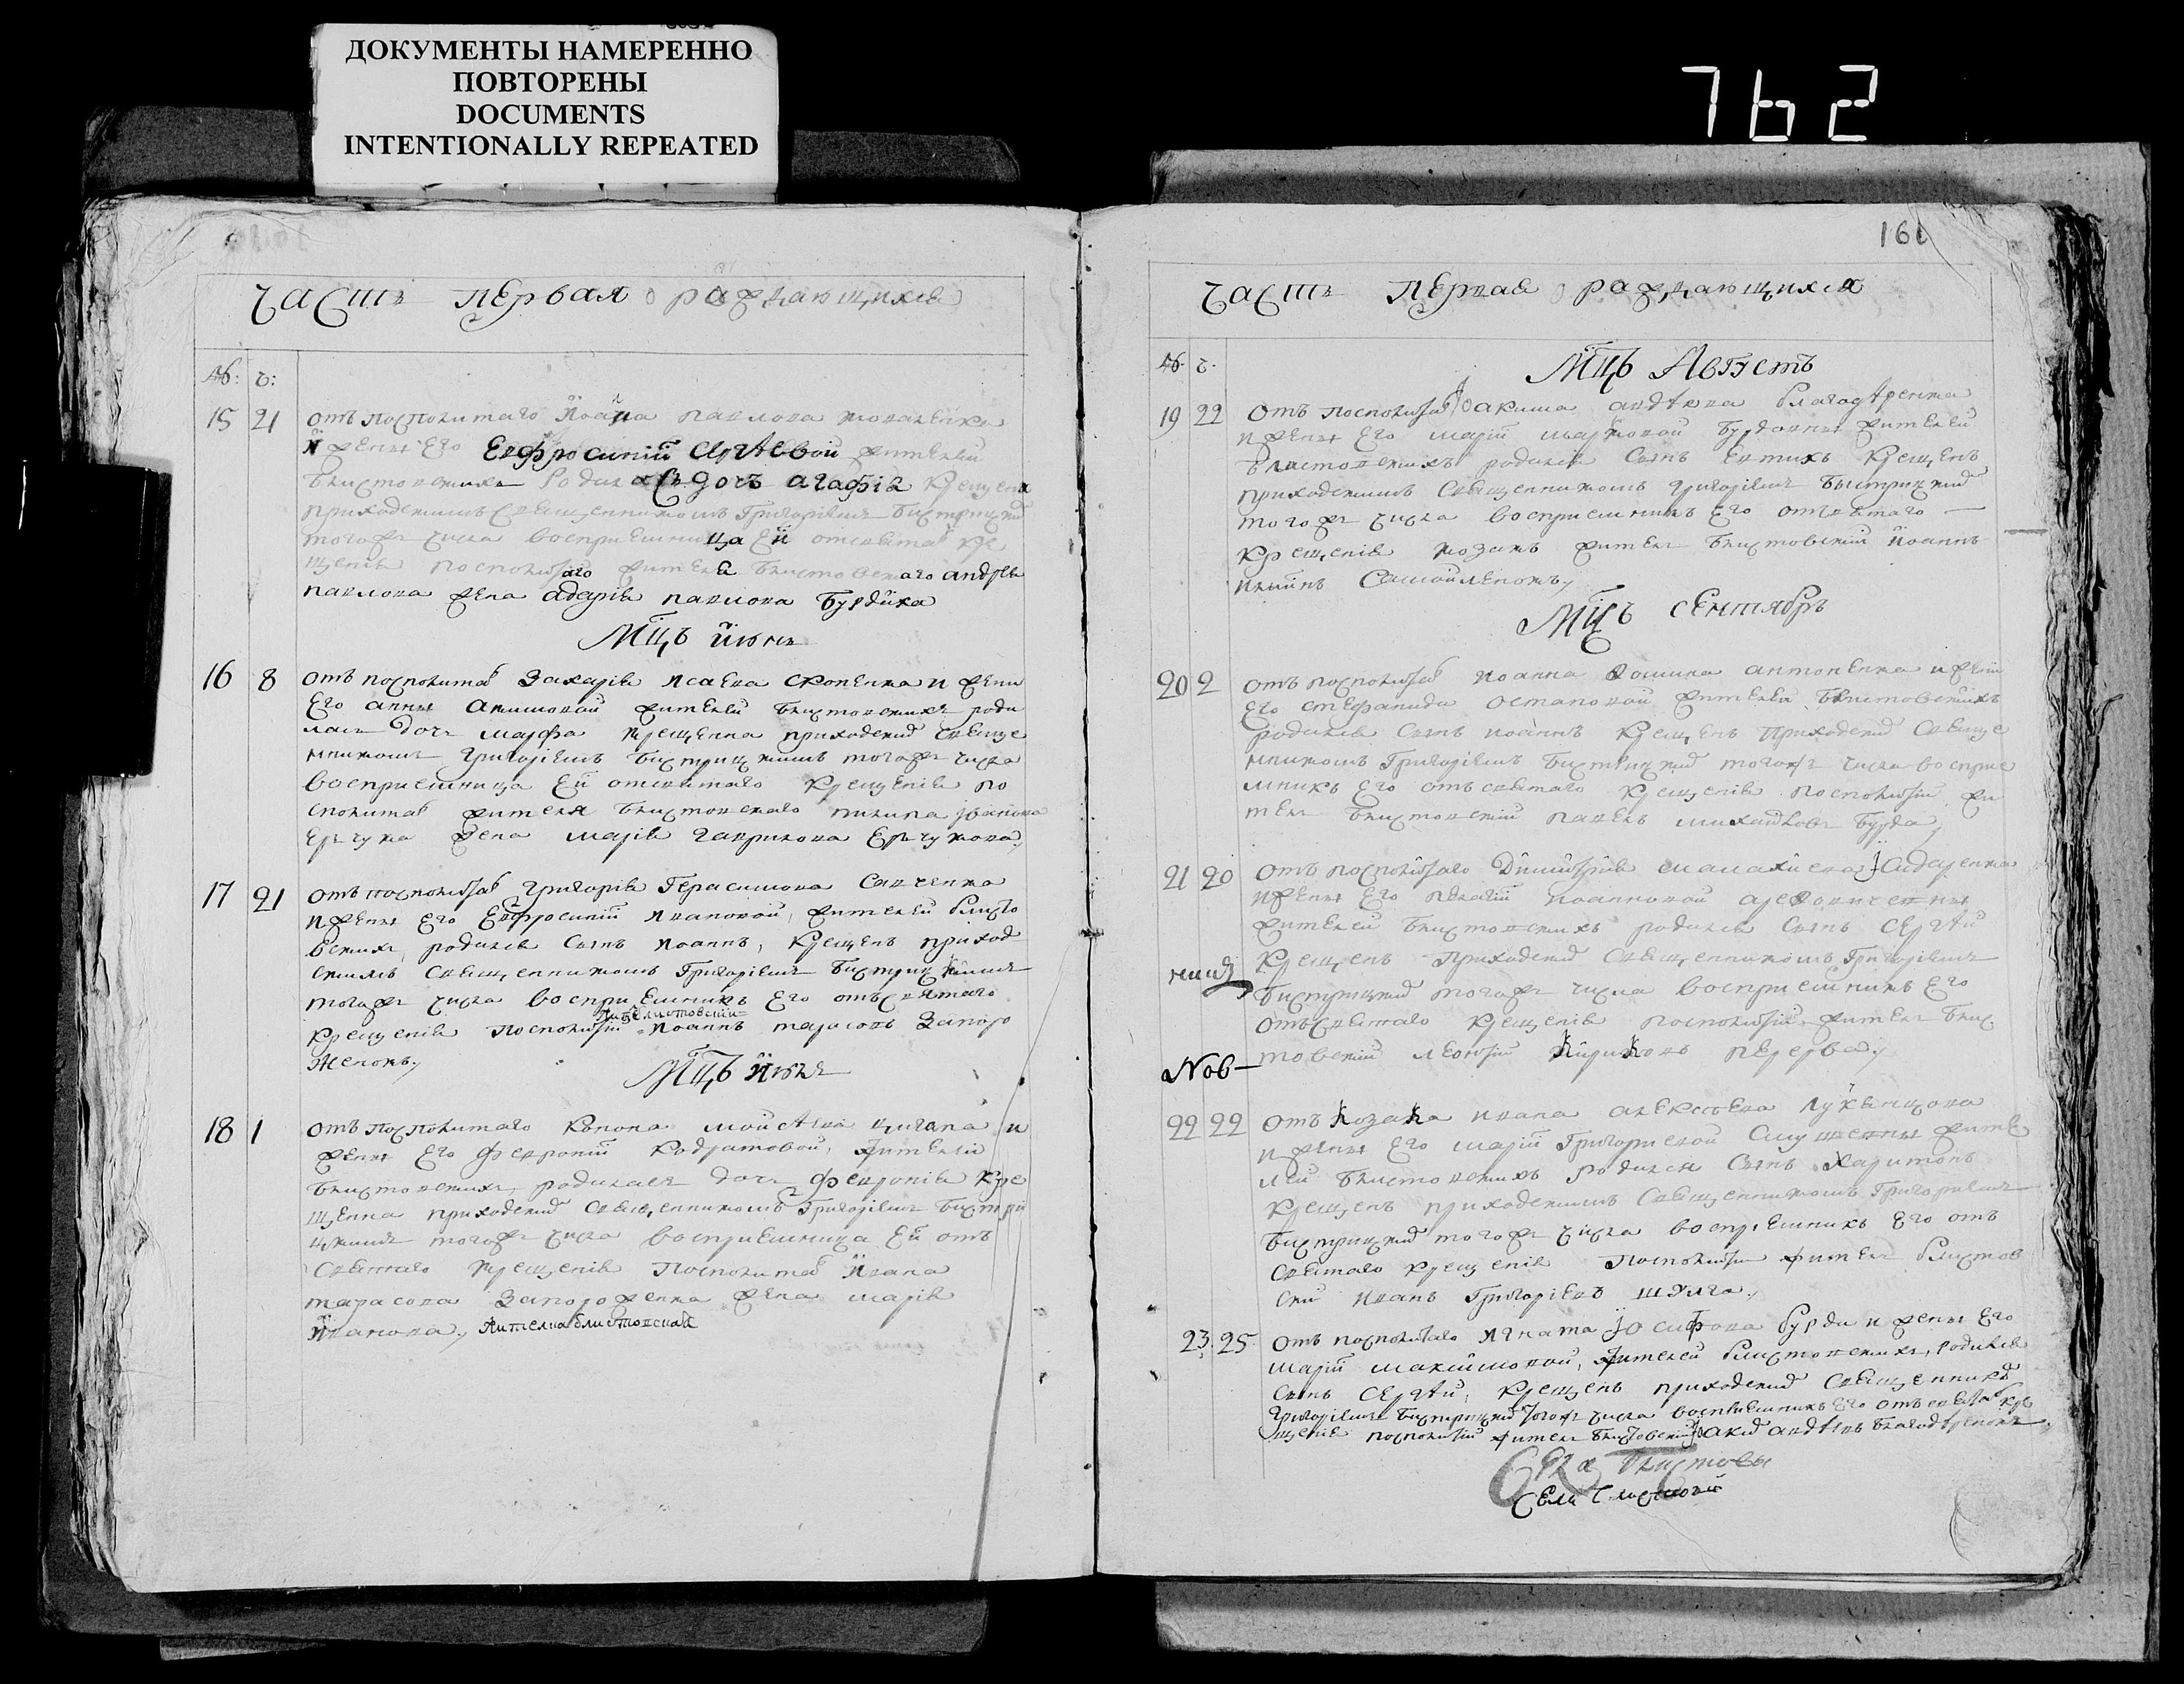 ДОКУМЕНТЫ НАМЕРЕННО
ПОВТОРЕНЫ
DOCUMENTS
INTENTIONALLY REPEATED
762
часть первая о раждающихся
№: ч:
15 21 отъ посполитаго Iоана павлова
и жены его Евфросинiи Сергѣевой жителей
блистовскихъ родилася дочь агафiя крещена
приходскимъ священникомъ Григорiемъ Бистрицким
тогожъ числа восприемница ей отсвятаг кре
щенiя посполитаго жителя блистовскаго андрея
павлова жена дарiя павлова Бурдика
Мцъ iюнь
16 8 отъ посполитаг Захарiя исаева скопенка и жени
Его анны акимовой жителей блистовскихъ роди
лась дочь марфа крещенна приходским свяще
нникомъ Григорiемъ Бистрицкимъ тогожъ числа
восприемница Ей отсвятаго крещенiя по
сполитаг жителя блистовскаго
жена марiя гаврилова
17 21 отъ посполитаг Григорiя Герасимова Савченка
и жены Его Евфросинiи ивановой, жителей блисто
вскихъ, родился сынъ иоаннъ, крещенъ приход
скимъ священникомъ Григорiемъ Бистрицкимъ
тогожъ числа восприемникъ Его отъ святаго
жит блистовскiи
крещенiя посполитiй иоаннъ тарасовъ Запоро
женокъ,
Мцъ iюль
18 1 отъ посполитаго Конона мойсѣева цигана и
жены Его февронiи Кодратовой, жителей
блистовскихъ, родилась дочь февронiя кре
щенна приходским священникомъ Григорiемъ Бистри
цкимъ тогожъ числа восприемница Ей отъ
святаго крещенiя посполитаг Ивана
тарасова Запороженка жена марiя
Иванова, жителка блистовская
161
часть первая о раждающихся
№. ч.
Мцъ Августъ
19 22 Отъ посполитаг Iоакима авдѣева благодѣренка
и жены Его марiи Бурдовны жителей
блистовскихъ родился сынъ крещенъ
приходскимъ священникомъ григорiемъ Быстрицким
тогожъ числа восприемникъ Его отъ святаго
крещенiя козакъ житель блистовскiй iоаннъ
Самойленокъ,
Мцъ сентябрь
20 2 отъ посполитаг иоанна фомина антоненка и жени
Его стефаниды остаповой жителей блистовскихъ
родился сынъ иоаннъ крещенъ приходским свяще
нникомъ Григорiемъ Бистрицким тогожъ числа восприе
мникъ Его отъ святаго крещенiя посполитiй жи
тель блистовскiй павелъ михайловъ Бурда,
21 20 отъ посполитаго Димитрiя малахiева Сидоренка
и жены Его пелагiи иоанновой
жителей блистовскихъ родился сынъ СЕргѣй
крещенъ приходским священникомъ Григорiемъ
Бистрицким тогожъ числа восприемникъ Его
отъ святаго крещенiя посполитiй житель блис
товскiй леонтiй Кириковъ перерва,
Nов
22 22 отъ козака ивана алексеева лукьянцова
и жены Его марiи Григориевой жите
лей блистовскихъ родился сынъ Харитонъ
крещенъ приходскимъ священникомъ Григориемъ
Бистрицким тогожъ числа восприемникъ Его отъ
святаго крещенiя посполитiи житель блистов
скiи иванъ Григорiевъ шулга,
23. 25 отъ посполитаго игната Iосифова бурди и жены Его
марiи максимовой, жителей блистовскихъ, родился
сынъ СЕргѣй, крещенъ приходским священником
Григорiемъ Бистрицким тогожъ числа восприемникъ Его отъ святаг кре
щенiя посполитiй житель блистовскiй Iоаким авдѣевъ благодѣренокъ
Села блистовы